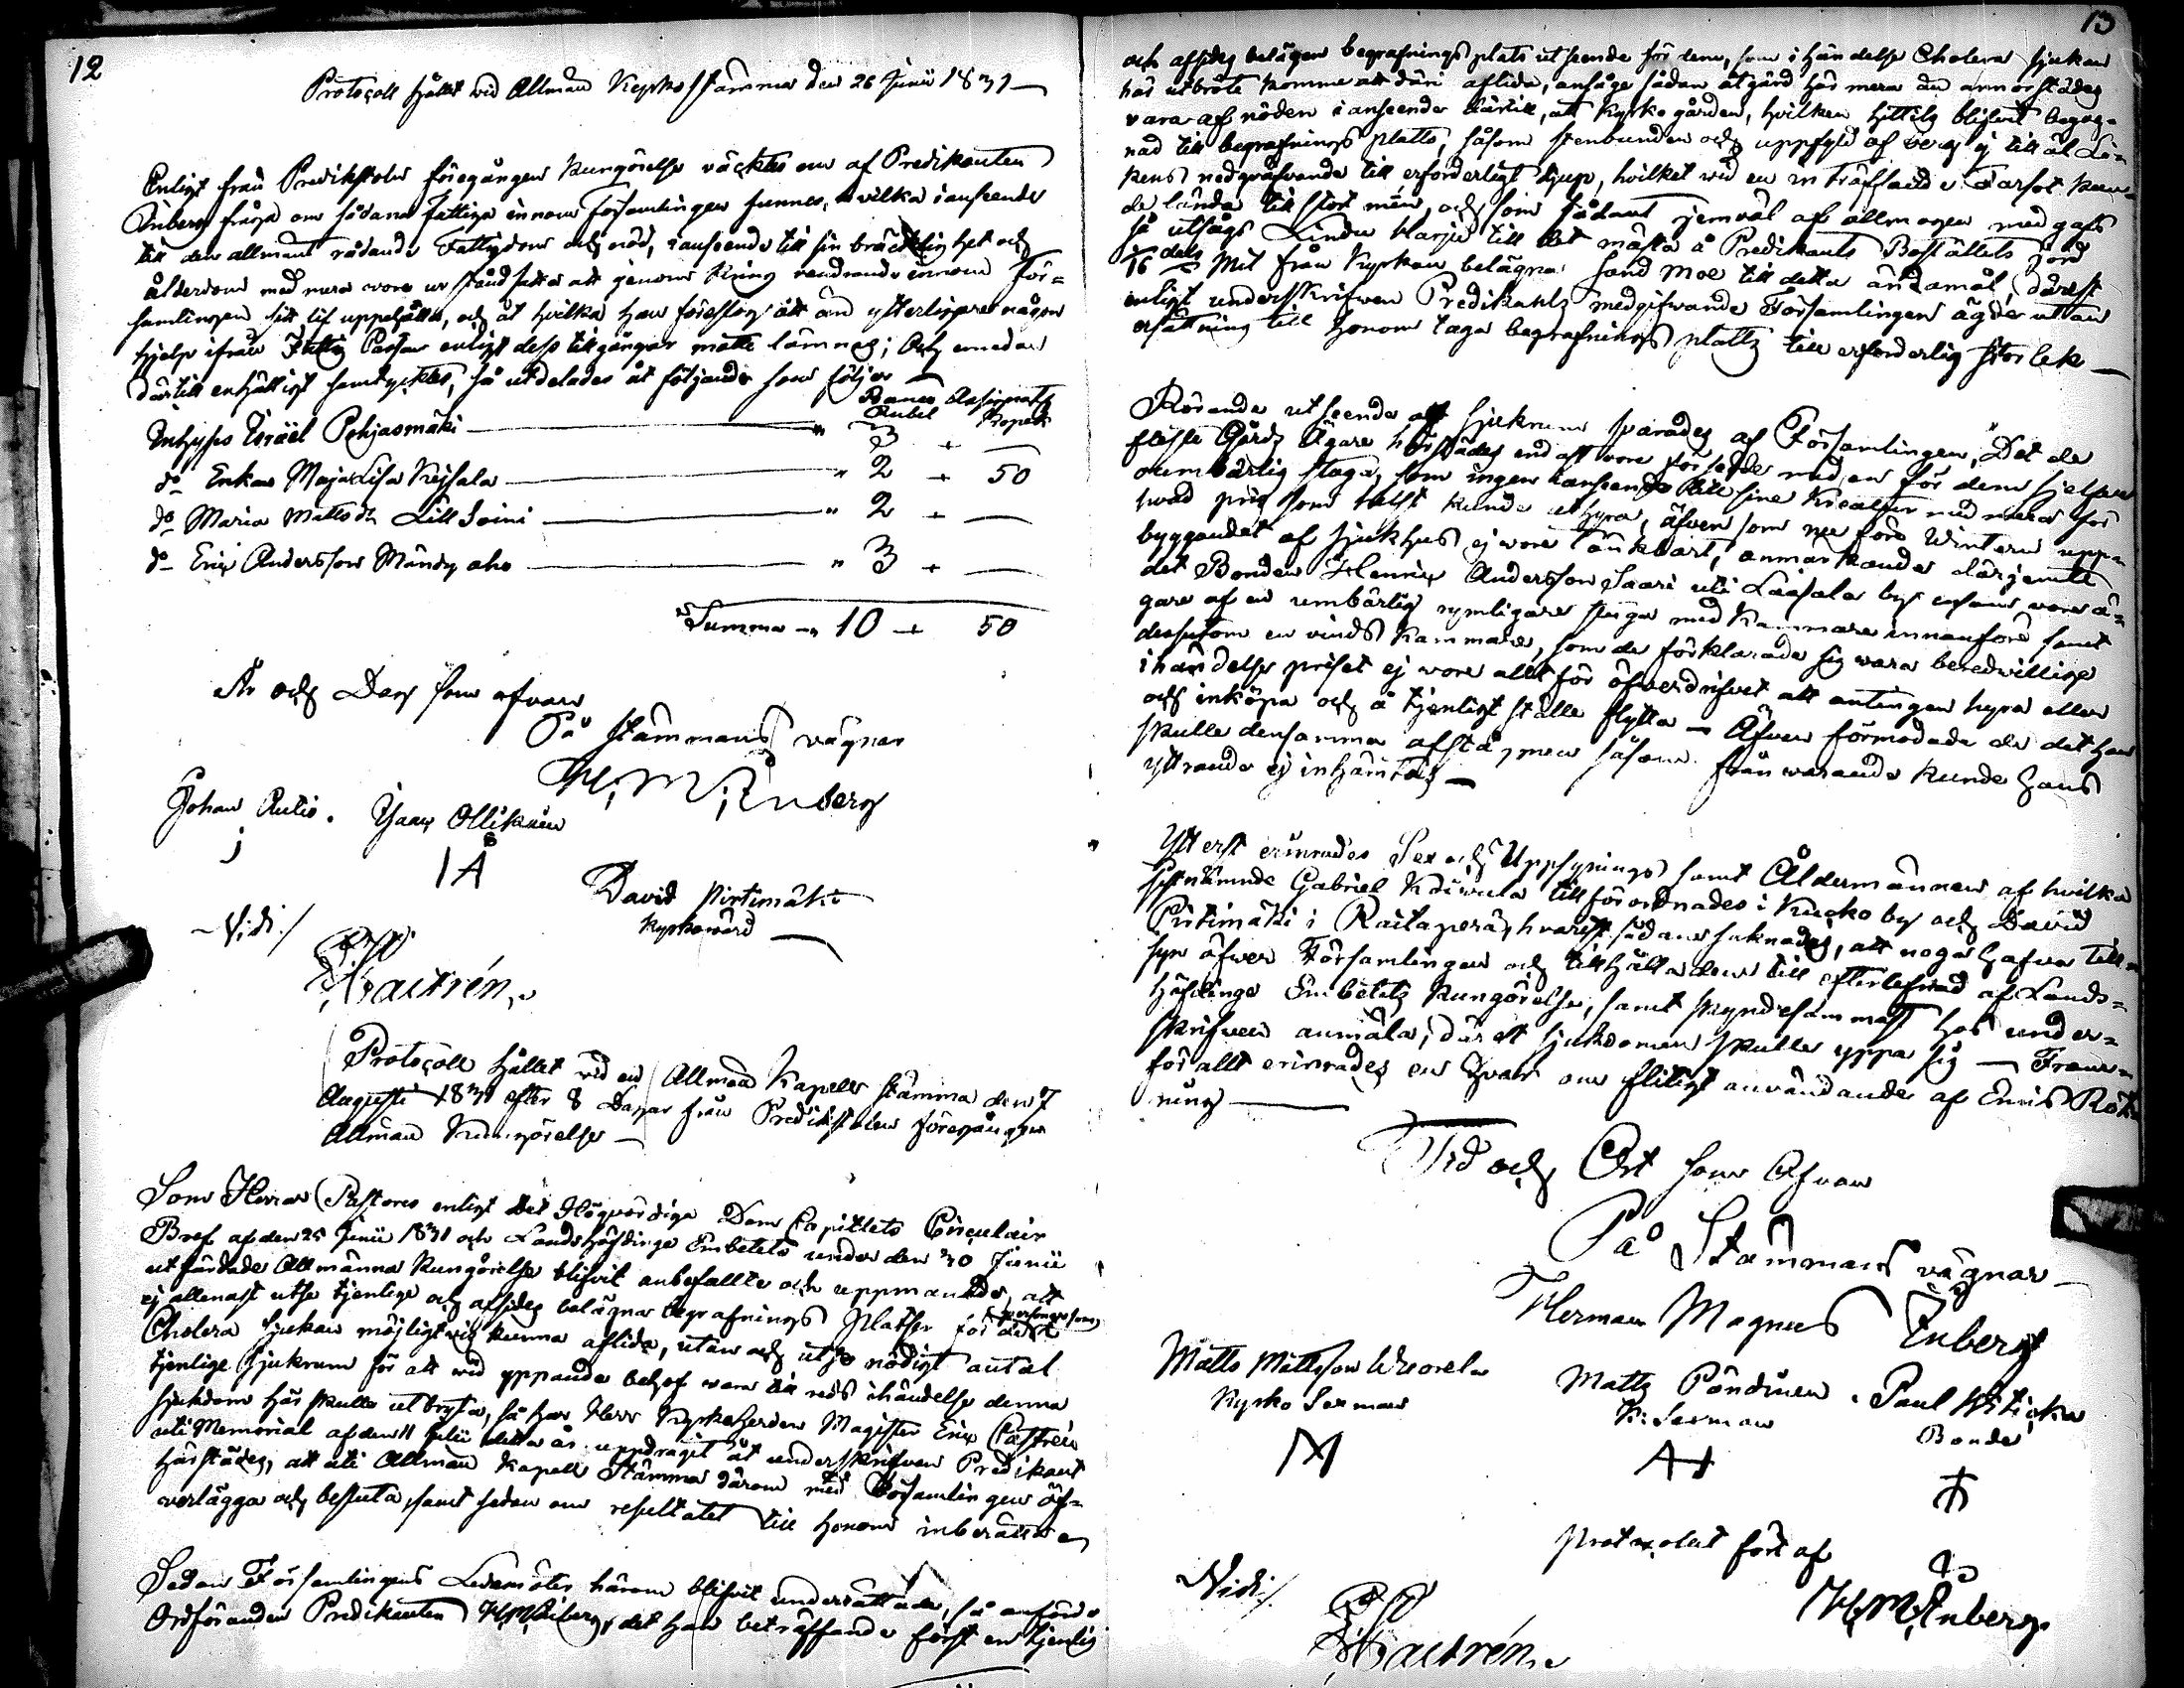 12
Protocoll hållet vid Allmän Kyrkostämma den 26 Junii 1831 —
Enligt från Predikstolen föregången kungörelse väcktes nu af Predikanten
Enberg fråga om sådana fattiga innom församlingen funnes, hvilka i anseende
till den allmänt rådande Fattigdom och nöd, i anseende till sin bräcklighet och
ålderdom med mera wore ur stånd satta att genom kring vandrande innom För=
samlingen sitt lif uppehålla, och åt hvilka han föreslog att än ytterligare någon
hjelp ifrån Fattig Cassan enligt dess tillgångar måtte lämnas; Och emedan
därtill enhälligt samtycktes, så utdelades åt följande som följer —
Banco Assignats
Rubel Kopek
Inhyses Israël Pohjasmäki — " 3 " —
do Enkan Maja Lisa Keisala — " 2 " 50
do Maria Matts dr Lill Soini — " 2 " —
do Eric Andersson Mändy aho — " 3 " —
Summa " 10 " 50
År och Dag som ofvan
På Stämmans vägnar
H: M: Enberg
Johan Autio. Isaac Ollikain
IA
David Pirtimäki
Kyrkowärd
Vidi/
Castrén
Protocoll hållet vid en Allmän Kapell stämma den 7
Augusti 1831 efter 8 Dagar från Predikstolen föregången
Allmän Kungörelse —
Som Herrar Pastores enligt Det Högvördige Dom Capitlets Circulair
Bref af den 25 Junii 1831 och Landshöfdinge Embetets under den 30 Junii
utfärdade Allmänna Kungörelse blifvit anbefallte och uppmanade, att
ej allenast utse tjenlige och afsides belägna begrafnings platser för dest
personer som
Cholera sjukan möjligtvis kunna aflida, utan och utse nödigt antal
tjenlige sjukrum för att vid yppande behof wara till reds i händelse denna
sjukdom här skulle utbryta, så har Herr Kyrkoherden Magister Eric Castrén
uti Memorial af den 11 Julii detta år uppdragit åt underskrifven Predikant
härstädes, att uti Allmän Kapell Stämma därom med Församlingen öf=
verlägga och besluta, samt sedan om resultatet till honom inberätta
Sedan Församlingens Ledamöter härom blifvit underrättade, så anförde
Ordföranden Predikanten H M Enberg, det han beträffande först en tjenlig
13
och afsides belägen begrafnings plats utseende för dem, som i händelse Cholera sjukan
här utbröte komme att däri aflida, ansåge sådan åtgärd här mera än annorstädes
vara af nöden i anseende därtill, att kyrkogården, hvilken hittils blifvit begag=
nad till begrafnings platts, såsom stenbunden och uppfyld af berg ej tillät Li=
kens nedgräfvande till erforderligt djup, hvilket vid en inträffande Farsot kun=
de lända till stort mén, och som sådant jemväl af allmogen medgafs
så utsågs Lindu Harju till det mästa å Predikants Boställets jord
1/16 dels Mil från Kyrkan belägna sand moe till detta ändamål, därest
enligt underskrifven Predikants medgifwande Församlingen ägde utan
ersättning till honom taga begrafnings platts till erforderlig storlek —
Rörande utseende af sjukrum swarades af Församlingen, Det de
fläste Gårds Ägare härstädes endast wore försedde med en för dem sjelfva
oumbärlig stuga, som ingen i anseende till sine Kreatur med mera för
hvad pris som helst kunde uthyra, äfven som nu före Wintern upp=
byggandet af sjukhus ej wore tänkbart, anmärkande därjemte
det Bonden Henric Andersson Saari uti Lassala by ensam wore ä=
gare af en umbärlig rymligare stuga med Kammare innanföre samt
dessutom en vinds Kammare, som de förklarade sig wara beredwillige
i händelse priset ej wore allt för öfverdrifvet att antingen hyra eller
och inköpa och å tjenligt ställe flytta — Äfven förmodade de det han
skulle densamma afstå, men såsom frånwarande kunde hans
yttrande ej inhämtas —
Ytterst erinrades Sex och Uppsynings samt Åldermännen af hvilka
sistnämnde Gabriel Koiwula tillförordnades i Kucko by och David
Pirtimäki i Raitaperä, hvarest sådane saknades, att noga hafva till=
syn öfwer Församlingen och tillhålla dem till efterlefnad af Lands=
höfdinge Embetets Kungörelse, samt skyndesammast hos under=
skrifven anmäla, därest sjukdomen skulle yppa sig — Fram=
för allt erinrades en hvar om flitigt användande af Enris Rök=
ning —
Tid och Ort som Ofvan
På Stämmans vägnar
Herman Magnus Enberg
Matts Mattsson Wuorela
Kyrko Sexman
Matts Pöndinen
K: Sexman
Paul Witicka
Bonde
Protocolet fört af
H M Enberg
Vidi/.
Castrén